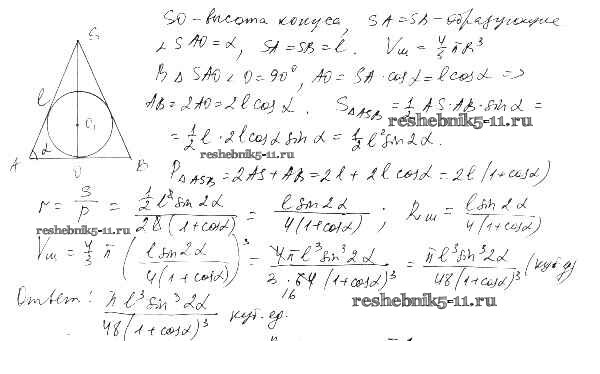 SO - высота конуса, SA = SB - образующие
∠SAO = α, SA = SB = l. Vш = 4/3 πR³
В △SAO ∠O = 90°, AO = SA · cosα = l cosα =>
AB = 2AO = 2l cosα. S△ASB = 1/2 AS · AB · sinα =
reshebnik5-11.ru
= 1/2 l · 2l cosα sinα = 1/2 l² sin2α.
reshebnik5-11.ru
P△ASB = 2AS + AB = 2l + 2l cosα = 2l(1+cosα)
r = S/P = (1/2 l² sin2α)/(2l(1+cosα)) = (l sin2α)/(4(1+cosα)); Rш = (l sin2α)/(4(1+cosα))
reshebnik5-11.ru
Vш = 4/3 π ((l sin2α)/(4(1+cosα)))³ = (4πl³ sin³2α)/(3 · 64(1+cosα)³) = (πl³ sin³2α)/(48(1+cosα)³) (куб.ед)
16
reshebnik5-11.ru
Ответ: (πl³ sin³2α)/(48(1+cosα)³) куб.ед.
S
l
O₁
A
α
O
B